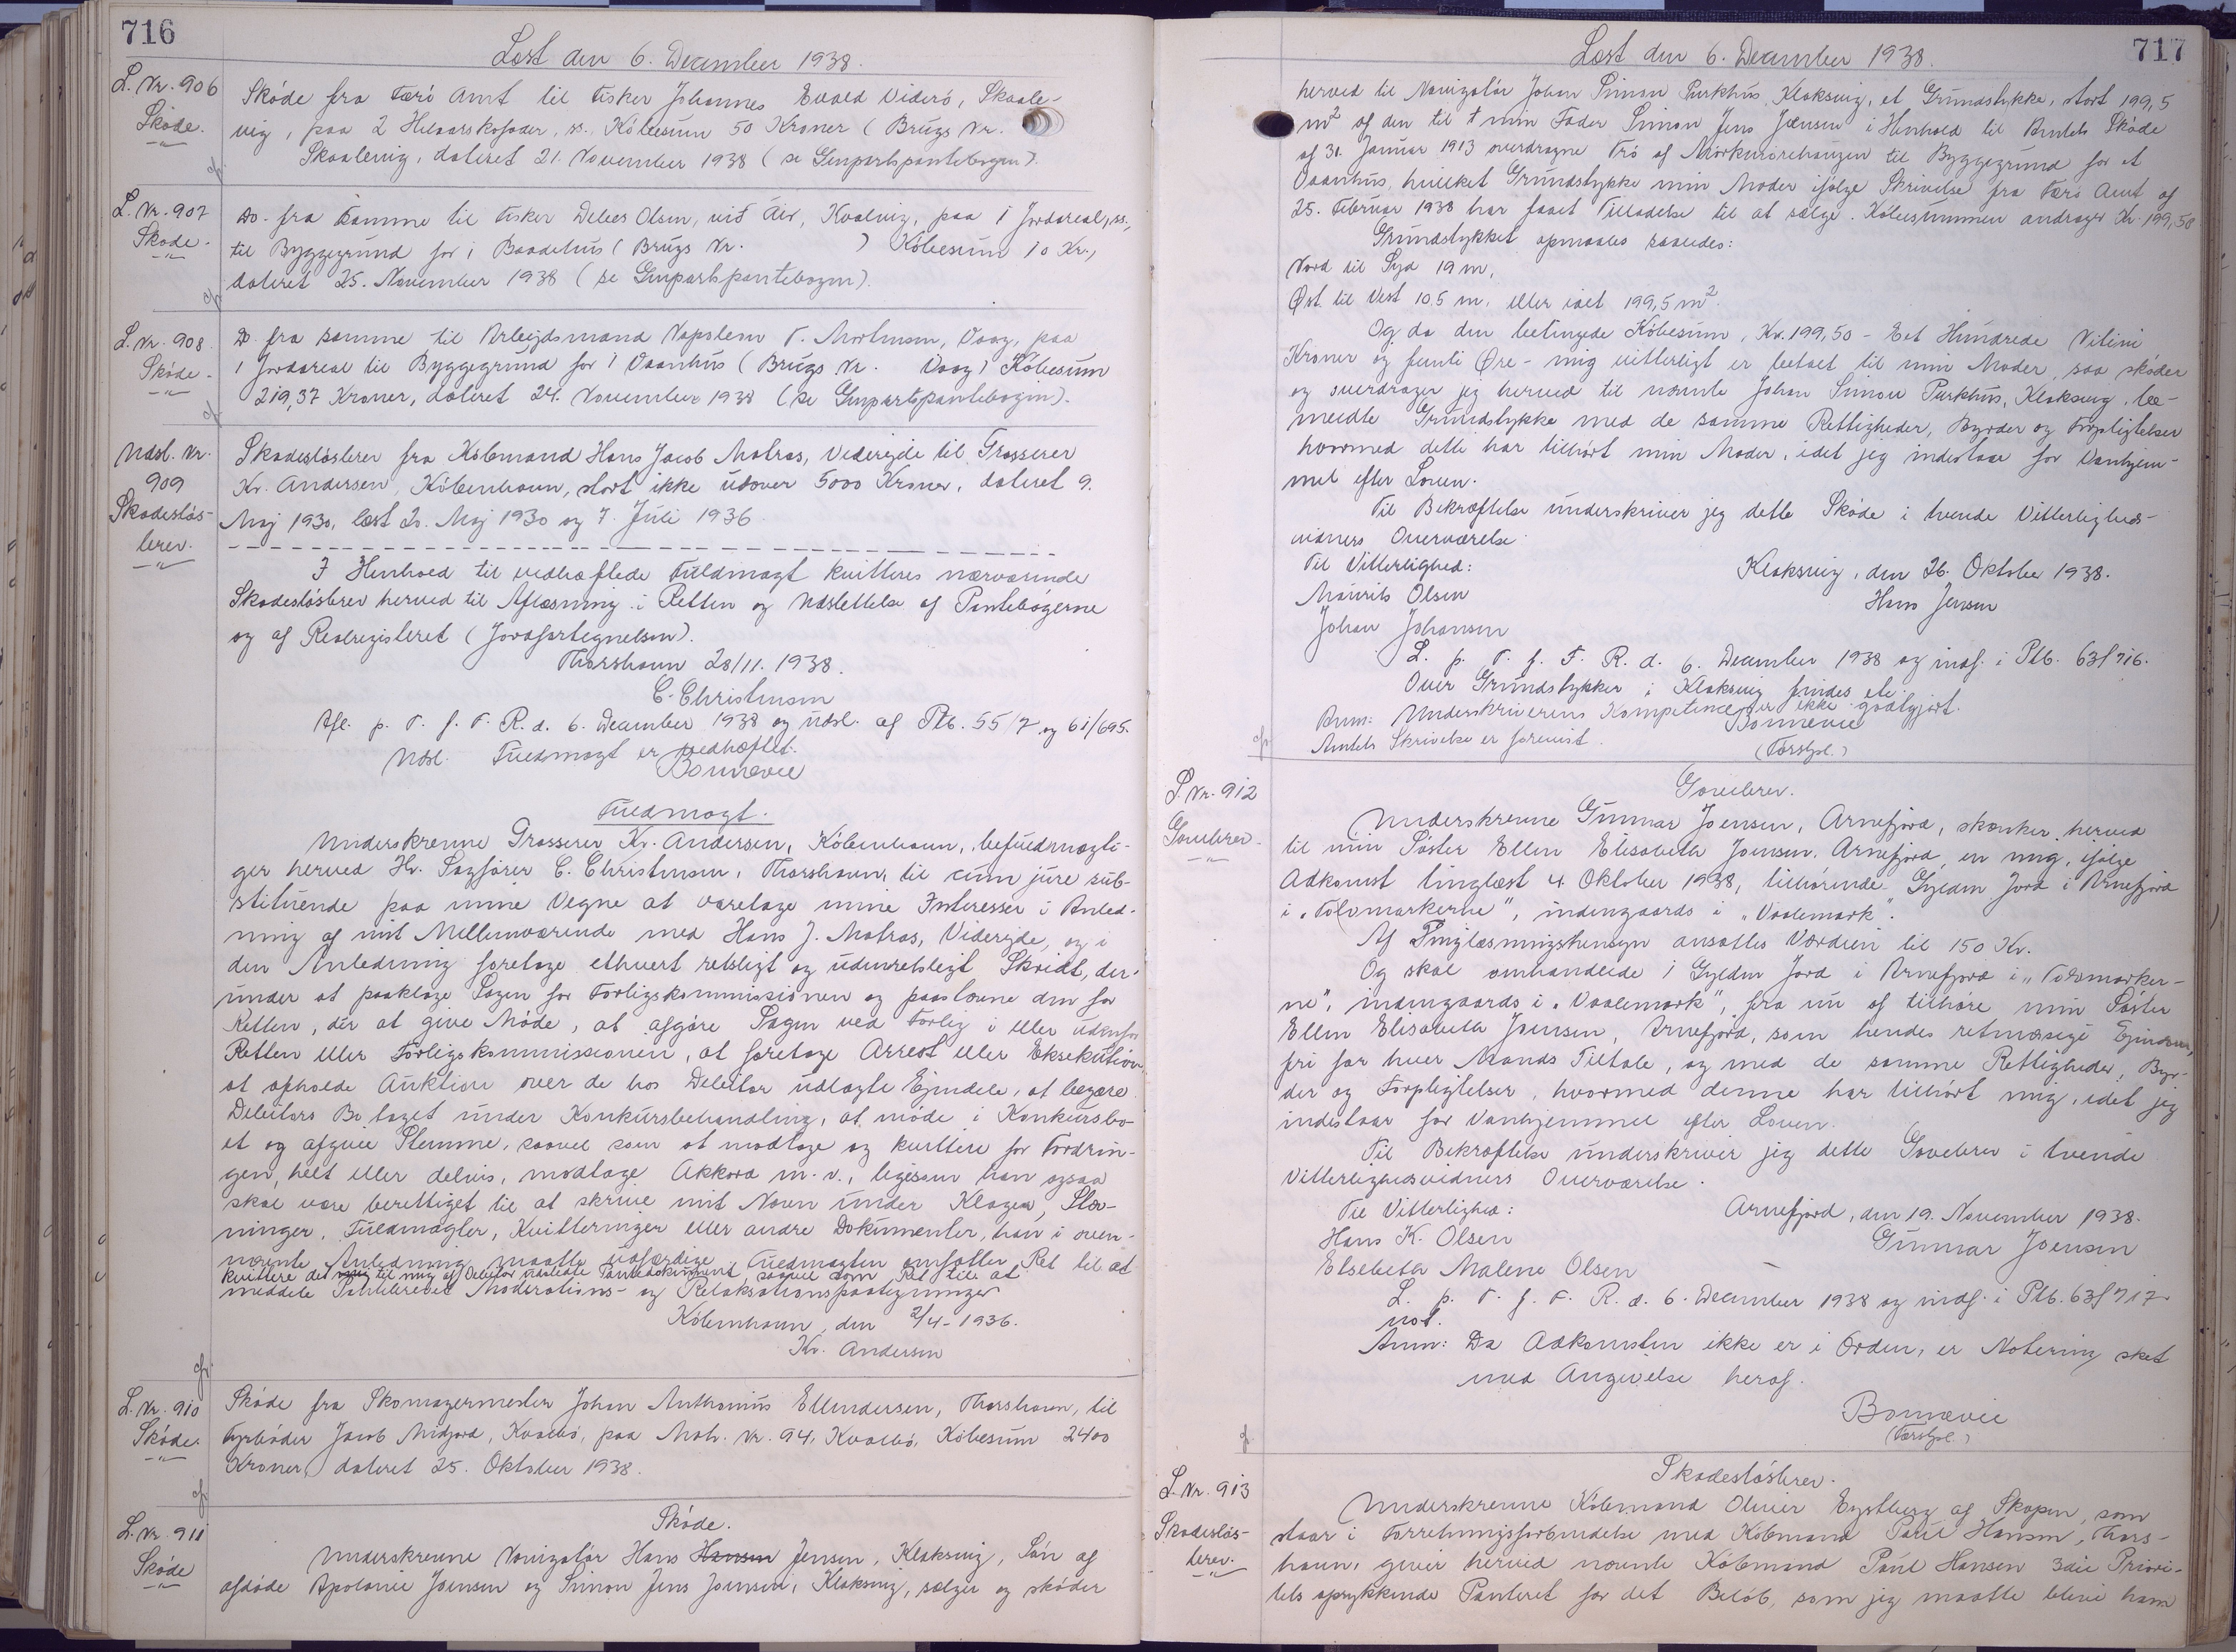 716
Læst den 6. December 1938.
L. Nr. 906
Skøde.
Skøde fra Færø Amt til Fisker Johannes Evald Viderø, Skaale-
vig, paa 2 Helaarskofoder, ss., Købesum 50 Kroner (Brugs Nr.
Skaalevig, dateret 21. November 1938 (se Genpartspantebogen).
L. Nr. 907
Skøde.
Do. fra samme til Fisker Debes Olsen, við Áir, Kvalvig, paa 1 Jordareal, ss.,
til Byggegrund for 1 Baadehus (Brugs Nr. ) Købesum 10 Kr.,
dateret 25. November 1938 (se Genpartspantebogen).
L. Nr. 908.
Skøde.
Do fra samme til Arbejdsmand Napoleon T. Mortensen, Vaag, paa
1 Jordareal til Byggegrund for 1 Vaanhus (Brugs Nr. Vaag) Købesum
219,37 Kroner, dateret 24. November 1938 (se Genpartspantebogen).
Udsl. Nr.
909
Skadesløs-
brev.
Skadesløsbrev fra Købmand Hans Jacob Matras, Viderejde til Grosserer
Kr. Andersen, København, stort ikke udover 5000 Kroner, dateret 9.
Maj 1930, læst 20. Maj 1930 og 7. Juli 1936.
I Henhold til vedhæftede Fuldmagt kvitteres nærværende
Skadesløsbrev herved til Aflæsning i Retten og Udslettelse af Pantebøgerne
og af Realregisteret (Jordfortegnelsen).
Thorshavn 28/11. 1938.
C. Christensen
Afl. p. T. f. F. R. d. 6. December 1938 og udsl. af Ptb. 55/7 og 61/695.
Udsl. Fuldmagt er vedhæftet.
Bonnevie
Fuldmagt.
Underskrevne Grosserer Kr. Andersen, København, befuldmægti-
ger herved Hr. Sagfører C. Christensen, Thorshavn, til cum jure sub-
stituende paa mine Vegne at varetage mine Interesser i Anled-
ning af mit Mellemværende med Hans J. Matras, Viderejde, og i
den Anledning foretage ethvert retsligt og udenretsligt Skridt, der-
under at paaklage Sagen for Forligskommissionen og paastævne den for
Retten, dér at give Møde, at afgøre Sagen ved Forlig i eller udenfor
Retten eller Forligskommissionen, at foretage Arrest eller Eksekution,
at afholde Auktion over de hos Debitor udlagte Ejendele, at begære
Debitors Bo taget under Konkursbehandling, at møde i Konkursbo-
et og afgive Stemme, saavel som at modtage og kvittere for Fordrin-
gen, helt eller delvis, modtage Akkord m. v., ligesom han ogsaa
skal være berettiget til at skrive mit Navn under Klager, Stæv-
ninger, Fuldmagter, Kvitteringer eller andre Dokumenter, han i oven-
nævnte Anledning maatte udfærdige. Fuldmagten omfatter Ret til at
kvittere det til mig af Debitor udstedte Pantedokument, saavel som Ret til at
meddele Pantebrevet Moderations- og Relaksationspaategninger
København, den 2/4-1936.
Kr. Andersen
L. Nr. 910
Skøde.
Skøde fra Skomagermester Johan Anthonius Ellendersen, Thorshavn, til
Fyrbøder Jacob Midjord, Kvalbø, paa Matr. Nr. 94, Kvalbø, Købesum 2400
Kroner, dateret 25. Oktober 1938.
L. Nr. 911
Skøde
Skøde.
Underskrevne Navigatør Hans Hansen Jensen, Klaksvig, Søn af
afdøde Apolonie Joensen og Simon Jens Joensen, Klaksvig, sælger og skøder
717
Læst den 6. December 1938.
herved til Navigatør Johan Simon Purkhus, Klaksvig, et Grundstykke, stort 199,5
m² af den til † min Fader Simon Jens Joensen i Henhold til Amtets Skøde
af 31. Januar 1913 overdragne Trø af Mørkurørehaugen til Byggegrund for et
Vaanhus, hvilket Grundstykke min Moder ifølge Skrivelse fra Færø Amt af
25. Februar 1938 har faaet Tilladelse til at sælge. Købesummen andrager Kr. 199,50
Grundstykket opmaales saaledes:
Nord til Syd 19 m,
Øst til Vest 10.5 m. eller ialt 199,5 m².
Og da den betingede Købesum, Kr. 199,50 - Eet Hundrede Nitini
Kroner og femti Øre - mig vitterligt er betalt til min Moder, saa skøder
og overdrager jeg herved til nævnte Johan Simon Purkhus, Klaksvig, be-
meldte Grundstykke med de samme Rettigheder, Byrder og Forpligtelser
hvormed dette har tilhørt min Moder, idet jeg indestaar for Vanhjem-
mel efter Loven.
Til Bekræftelse underskriver jeg dette Skøde i tvende Vitterligheds-
vidners Overværelse.
Til Vitterlighed:
Klaksvig, den 26. Oktober 1938.
Maurits Olsen
Hans Jensen
Johan Johansen
L. p. T. f. F. R. d. 6. December 1938 og indf. i Ptb. 63f 716.
Over Grundstykker i Klaksvig findes etc.
Anm: Underskriverens Kompetence er ikke godtgjort.
Bonnevie
Amtets Skrivelse er forevist.
(Forstpl.)
L. Nr. 912
Gavebrev.
Gavebrev.
Underskrevne Gunnar Joensen, Arnefjord, skænker herved
til min Søster Ellen Elisabeth Joensen, Arnefjord, en mig, ifølge
Adkomst tinglæst 4. Oktober 1938, tilhørende Gylden Jord i Arnefjord
i "Tolvmarkerne", indengaards i "Vaalemark".
Af Tinglæsningshensyn ansættes Værdien til 150 Kr.
Og skal omhandlede 1 Gylden Jord i Arnefjord i "Tolvmarker-
ne", indengaards i "Vaalemark", fra nu af tilhøre min Søster
Ellen Elisabeth Joensen, Arnefjord, som hendes retmæssige Ejendom,
fri for hver Mands Tiltale, og med de samme Rettigheder, Byr-
der og Forpligtelser, hvormed denne har tilhørt mig, idet jeg
indestaar for Vanhjemmel efter Loven.
Til Bekræftelse underskriver jeg dette Gavebrev i tvende
Vitterlighedsvidners Overværelse.
Til Vitterlighed:
Arnefjord, den 19. November 1938.
Hans K. Olsen
Gunnar Joensen
Elsebeth Malene Olsen
L. p. T. f. F. R. d. 6. December 1938 og indf. i Ptb. 63f 717
not.
Anm: Da Adkomsten ikke er i Orden, er Notering sket
med Angivelse heraf.
Bonnevie
(Forstpl.)
L. Nr. 913
Skadesløs-
brev.
Skadesløsbrev.
Underskrevne Købmand Olivier Eystberg af Skopen, som
staar i Forretningsforbindelse med Købmand Poul Hansen, Thors-
havn, giver herved nævnte Købmand Poul Hansen 3die Priori-
tets oprykkende Panteret for det Beløb, som jeg maatte blive ham